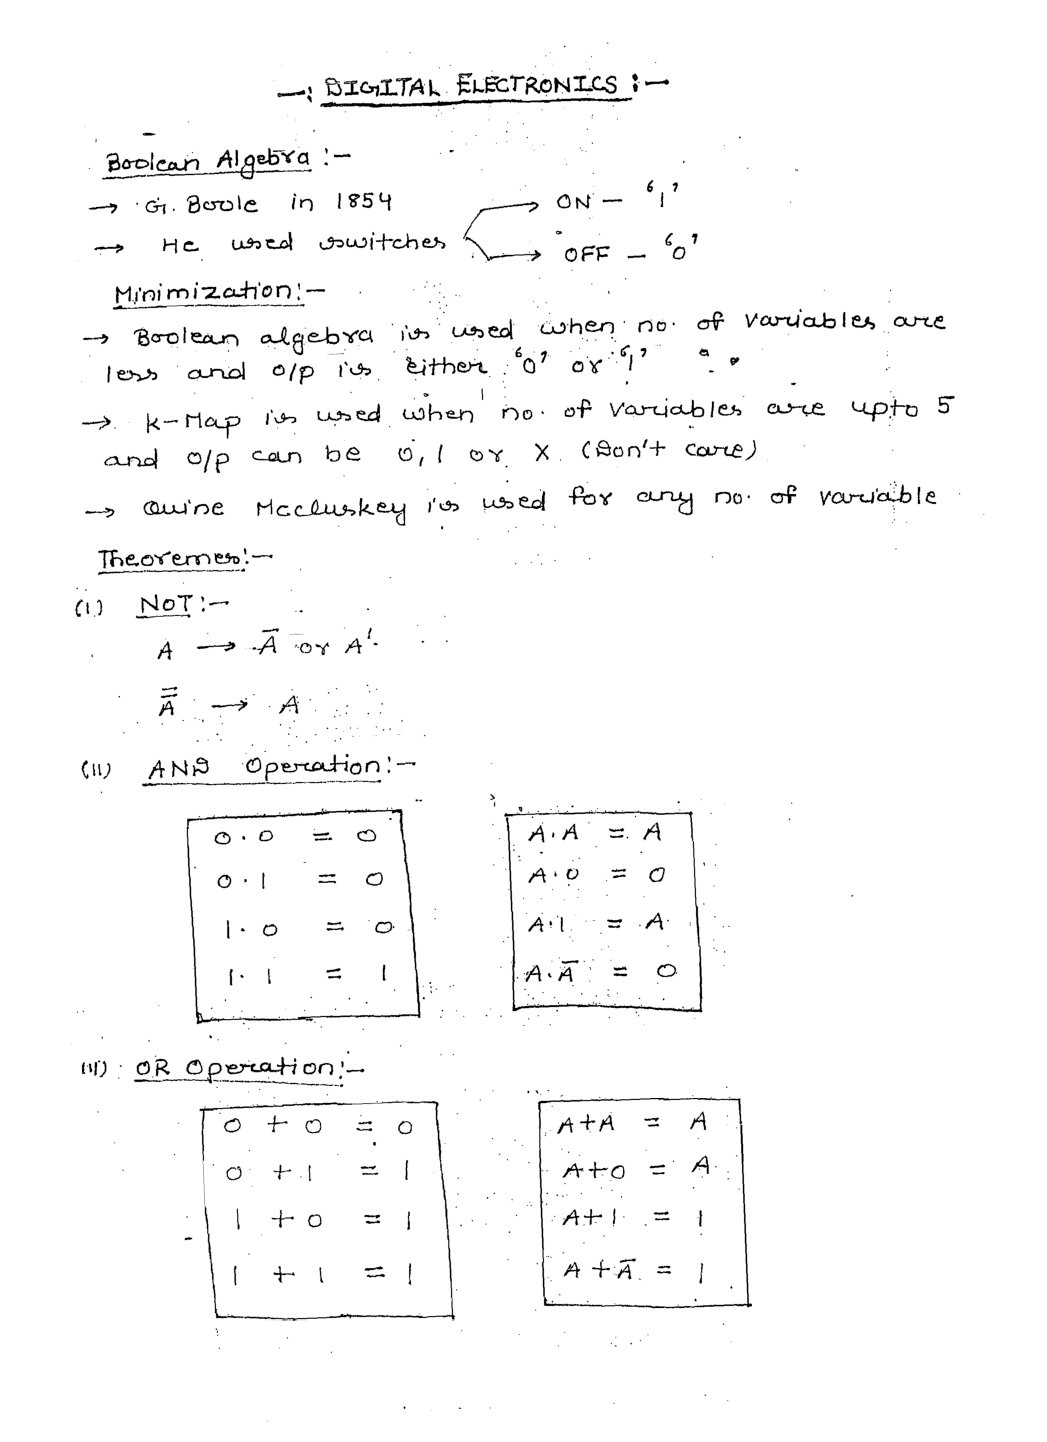 —: DIGITAL ELECTRONICS :—
Boolean Algebra :—
→ G. Boole in 1854
→ He used switches → ON — '1'
→ OFF — '0'
Minimization:—
→ Boolean algebra is used when no. of variables are
less and o/p is either '0' or '1'
→ K-Map is used when no. of variables are upto 5
and o/p can be 0, 1 or X (Don't care)
→ Quine Mccluskey is used for any no. of variable
Theoremes:—
(I) NOT:—
A → Ā or A'
A̿ → A
(II) AND Operation:—
0 · 0 = 0
0 · 1 = 0
1 · 0 = 0
1 · 1 = 1
A · A = A
A · 0 = 0
A · 1 = A
A · Ā = 0
(III) OR Operation:—
0 + 0 = 0
0 + 1 = 1
1 + 0 = 1
1 + 1 = 1
A + A = A
A + 0 = A
A + 1 = 1
A + Ā = 1